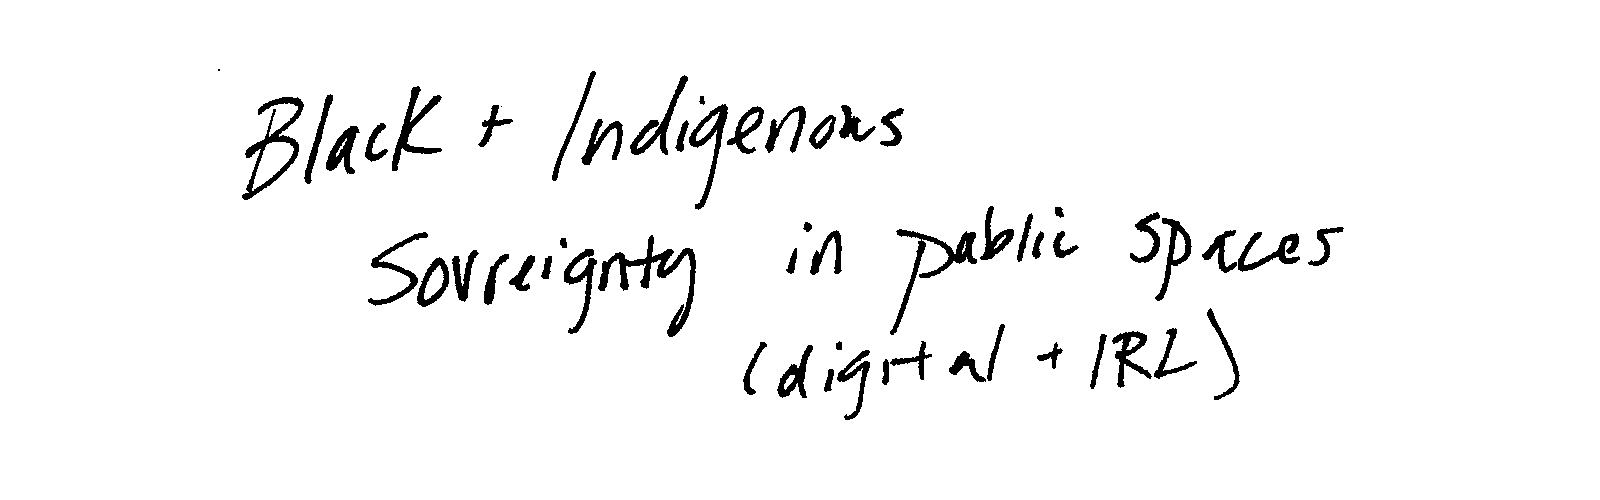 Black + Indigenous
Sovreignty in public spaces
(digital + IRL)